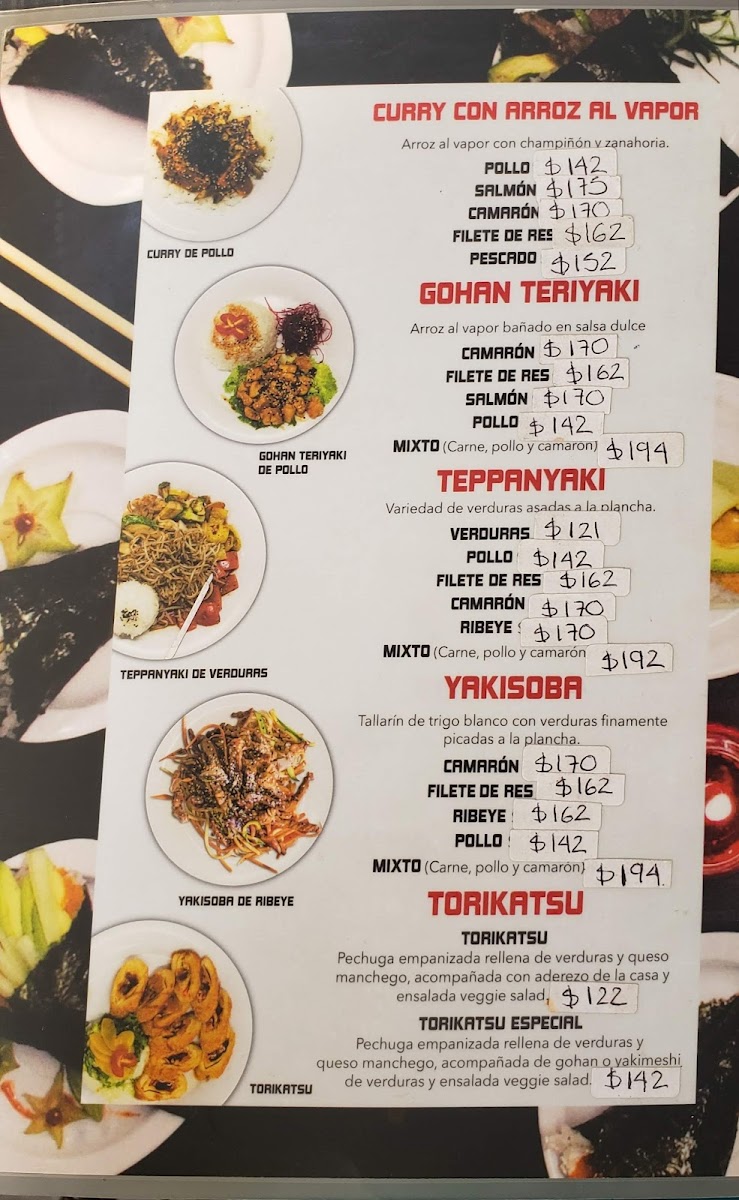 CURRY CON ARROZ AL VAPOR
Arroz al vapor con champiñón y zanahoria.
POLLO $142
SALMÓN $175
CAMARÓN $170
FILETE DE RES $162
PESCADO $152
CURRY DE POLLO
GOHAN TERIYAKI
Arroz al vapor bañado en salsa dulce
CAMARÓN $170
FILETE DE RES $162
SALMÓN $170
POLLO $142
MIXTO (Carne, pollo y camarón) $194
GOHAN TERIYAKI
DE POLLO
TEPPANYAKI
Variedad de verduras asadas a la plancha.
VERDURAS $121
POLLO $142
FILETE DE RES $162
CAMARÓN $170
RIBEYE $170
MIXTO (Carne, pollo y camarón $192
TEPPANYAKI DE VERDURAS
YAKISOBA
Tallarín de trigo blanco con verduras finamente
picadas a la plancha.
CAMARÓN $170
FILETE DE RES $162
RIBEYE $162
POLLO $142
MIXTO (Carne, pollo y camarón) $194
YAKISOBA DE RIBEYE
TORIKATSU
TORIKATSU
Pechuga empanizada rellena de verduras y queso
manchego, acompañada con aderezo de la casa y
ensalada veggie salad. $122
TORIKATSU ESPECIAL
Pechuga empanizada rellena de verduras y
queso manchego, acompañada de gohan o yakimeshi
de verduras y ensalada veggie salad. $142
TORIKATSU